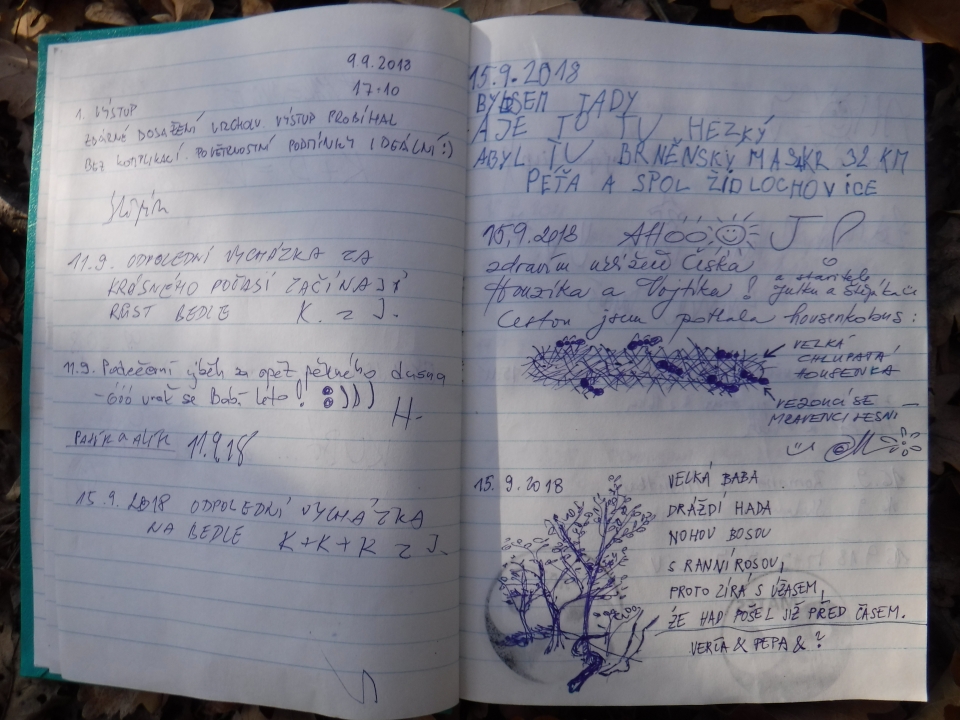 9.9.2018
17.10
1. VÝSTUP
ZDÁRNÉ DOSAŽENÍ VRCHOLU VÝSTUP PROBÍHAL
BEZ KOMPLIKACÍ. POVĚTRNOSTNÍ PODMÍNKY IDEÁLNÍ :)
11.9. ODPOLEDNÍ VYCHÁZKA ZA
KRÁSNÉHO POČASÍ ZAČÍNAJÍ
RŮST BEDLE K. z J.
11.9. Podvečerní výběh za opět pěkného
- óóó vrak se Babí léto! :)))
H-
PAJÍK a ALÍK 11.9.18
15.9.2018 ODPOLEDNÍ VYCHÁZKA
NA BEDLE K+K+K z J.
15.9.2018
BYL JSEM TADY
A JE TO TU HEZKÝ
A BYL TU BRNĚNSKÝ MASAKR 32 KM
PEŤA A SPOL ŽIDLOCHOVICE
15.9.2018 AHOJ J
zdravím
Honzíka a Vojtíka! a
Cestou jsem potkala housenkobus:
VELKÁ
CHLUPATÁ
HOUSENKA
VEZOUCÍ SE
MRAVENCI LESNÍ
15.9.2018
VELKÁ BABA
DRÁŽDÍ HADA
NOHOU BOSOU
S RANNÍ ROSOU,
PROTO ZÍRÁ S ÚŽASEM,
ŽE HAD POŠEL JIŽ PŘED ČASEM.
VERČA & PEPA & ?